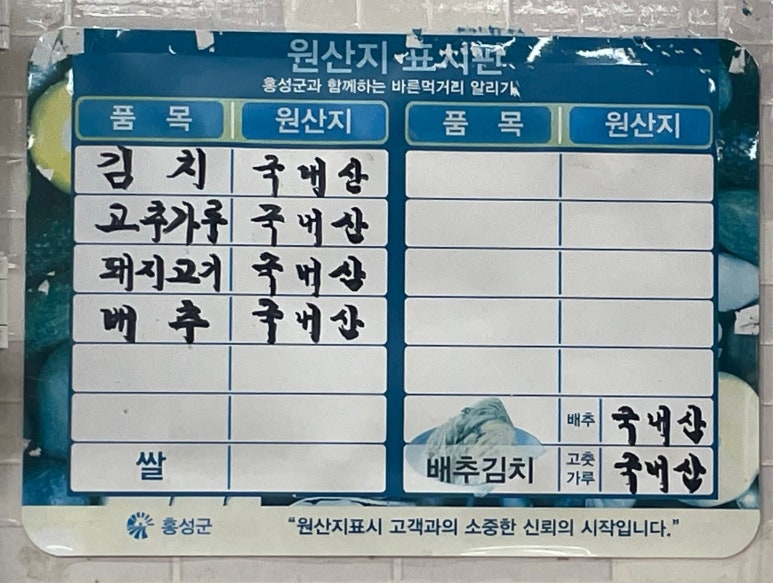 원산지 표시판
홍성군과 함께하는 바른먹거리 알리기
품 목 원산지 품 목 원산지
김 치 국내산
고추가루 국내산
돼지고기 국내산
배 추 국내산
쌀
배추김치
배추 국내산
고춧가루 국내산
홍성군 "원산지표시 고객과의 소중한 신뢰의 시작입니다."